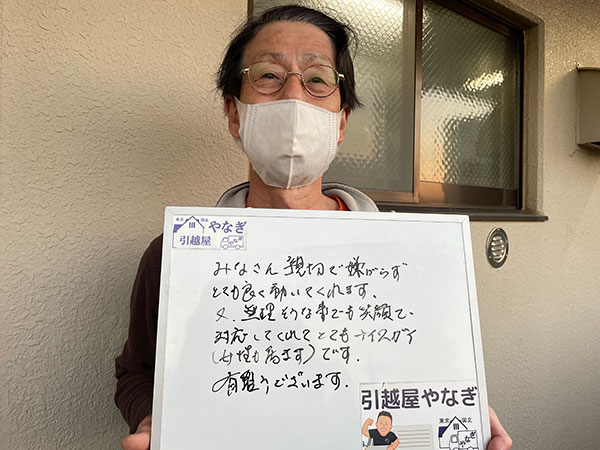 東京 国立
やなぎ
引越屋
やなぎ
みなさん 親切で嫌がらず
とても良く動いてくれます。
又、無理そうな事でも笑顔で、
対応してくれてとてもナイスガイ
(女性も居ます)です。
有難うございます。
引越屋やなぎ
東京 国立
やなぎ